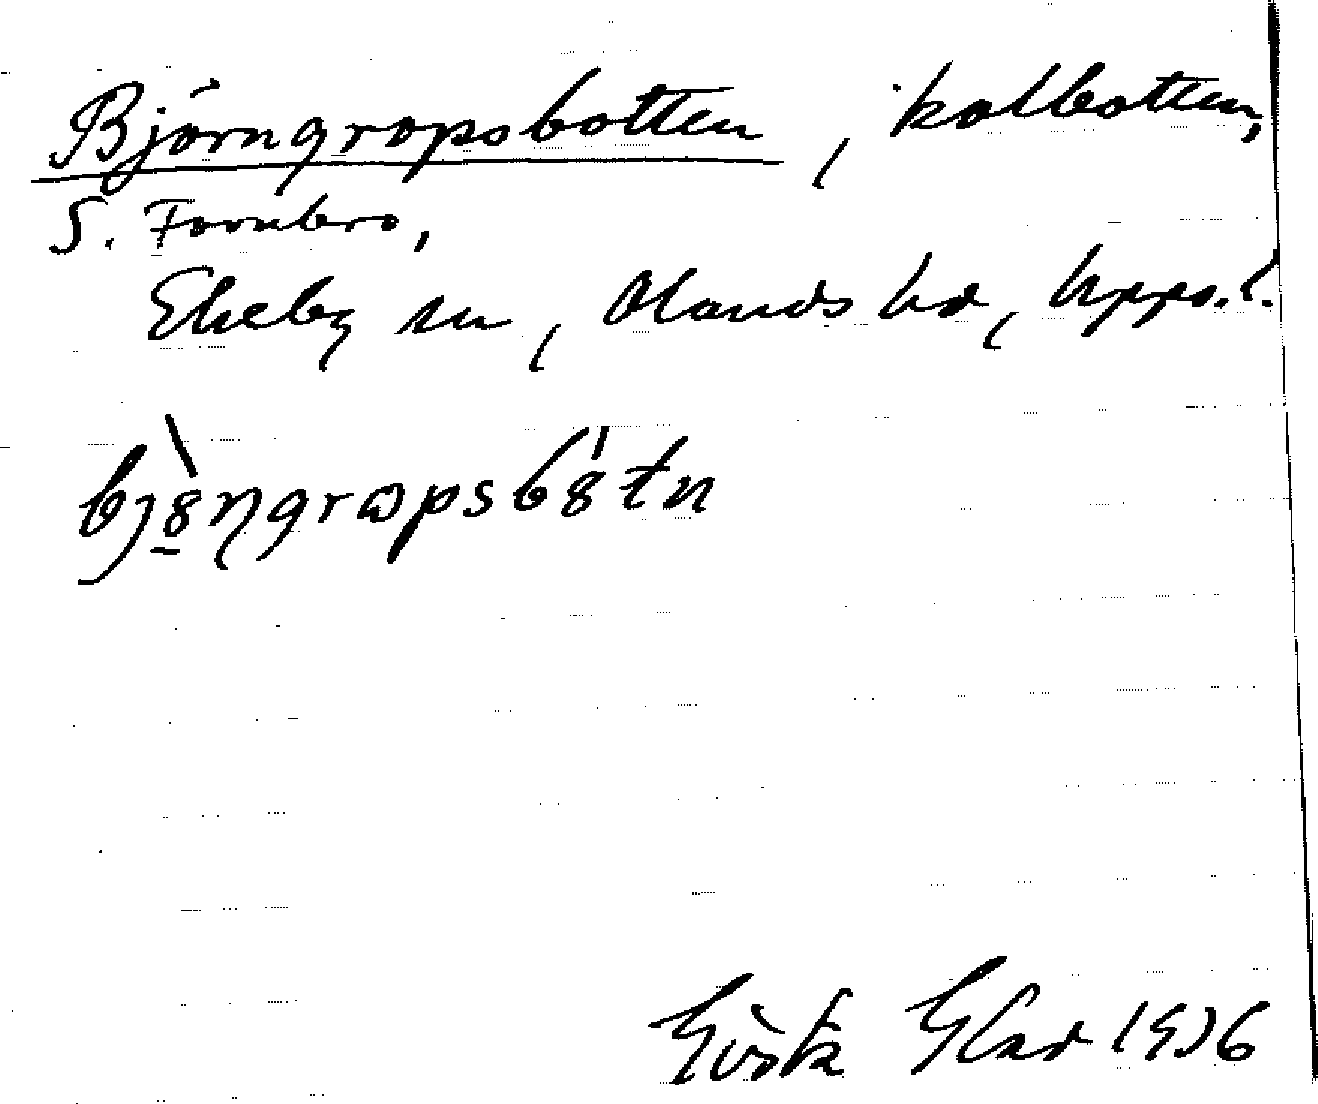 Björngropsbotten, kolbotten,
S. Fornbro,
Ekeby sn, Olands hd, Upps. l.
Gösta Glad 1936